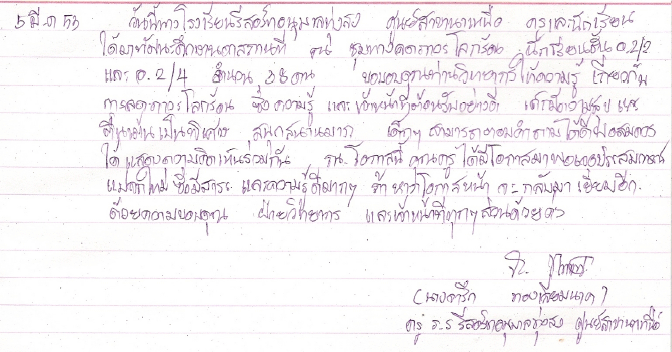 5 มี.ค 53 วันนี้ทางโรงเรียนรีสอร์ทอนุบาลทุ่งสง ศูนย์สาขานาเหนือ ครูและนักเรียน
ได้มาทัศนศึกษานอกสถานที่ ณ ชุมทางลดภาวะโลกร้อน นักเรียนชั้น อ.2/2
และ อ.2/4 จำนวน 38 คน ขอขอบคุณท่านวิทยากรให้ความรู้ เกี่ยวกับ
การลดภาวะโลกร้อน ซึ่งความรู้ และเจ้าหน้าที่ต้อนรับอย่างดี เด็กมีความสุข
ตื่นเต้นเป็นพิเศษ สนุกสนานมาก เด็กๆ สามารถตอบคำถามได้ดีพอสมควร
ได้แสดงความคิดเห็นร่วมกัน ณ.โอกาสนี้ คุณครูได้มีโอกาสมาพบเจอประสบการณ์
แปลกใหม่ ซึ่งมีสาระ และความรู้ดีมากๆ ถ้าหากโอกาสหน้า จะกลับมาเยี่ยมอีก.
ด้วยความขอบคุณ ฝ่ายวิทยากร และเจ้าหน้าที่ทุกๆ ส่วนด้วยค่ะ
(นางจารึก
ครู ร.ร รีสอร์ทอนุบาลทุ่งสง ศูนย์สาขานาเหนือ